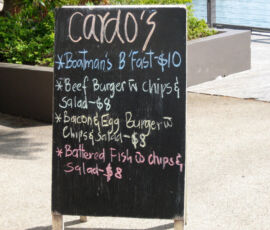 Cardo's
*Boatman's B'Fast-$10
*Beef Burger w Chips &
Salad-$8
*Bacon & Egg Burger w
Chips & Salad-$8
*Battered Fish w Chips &
Salad-$8